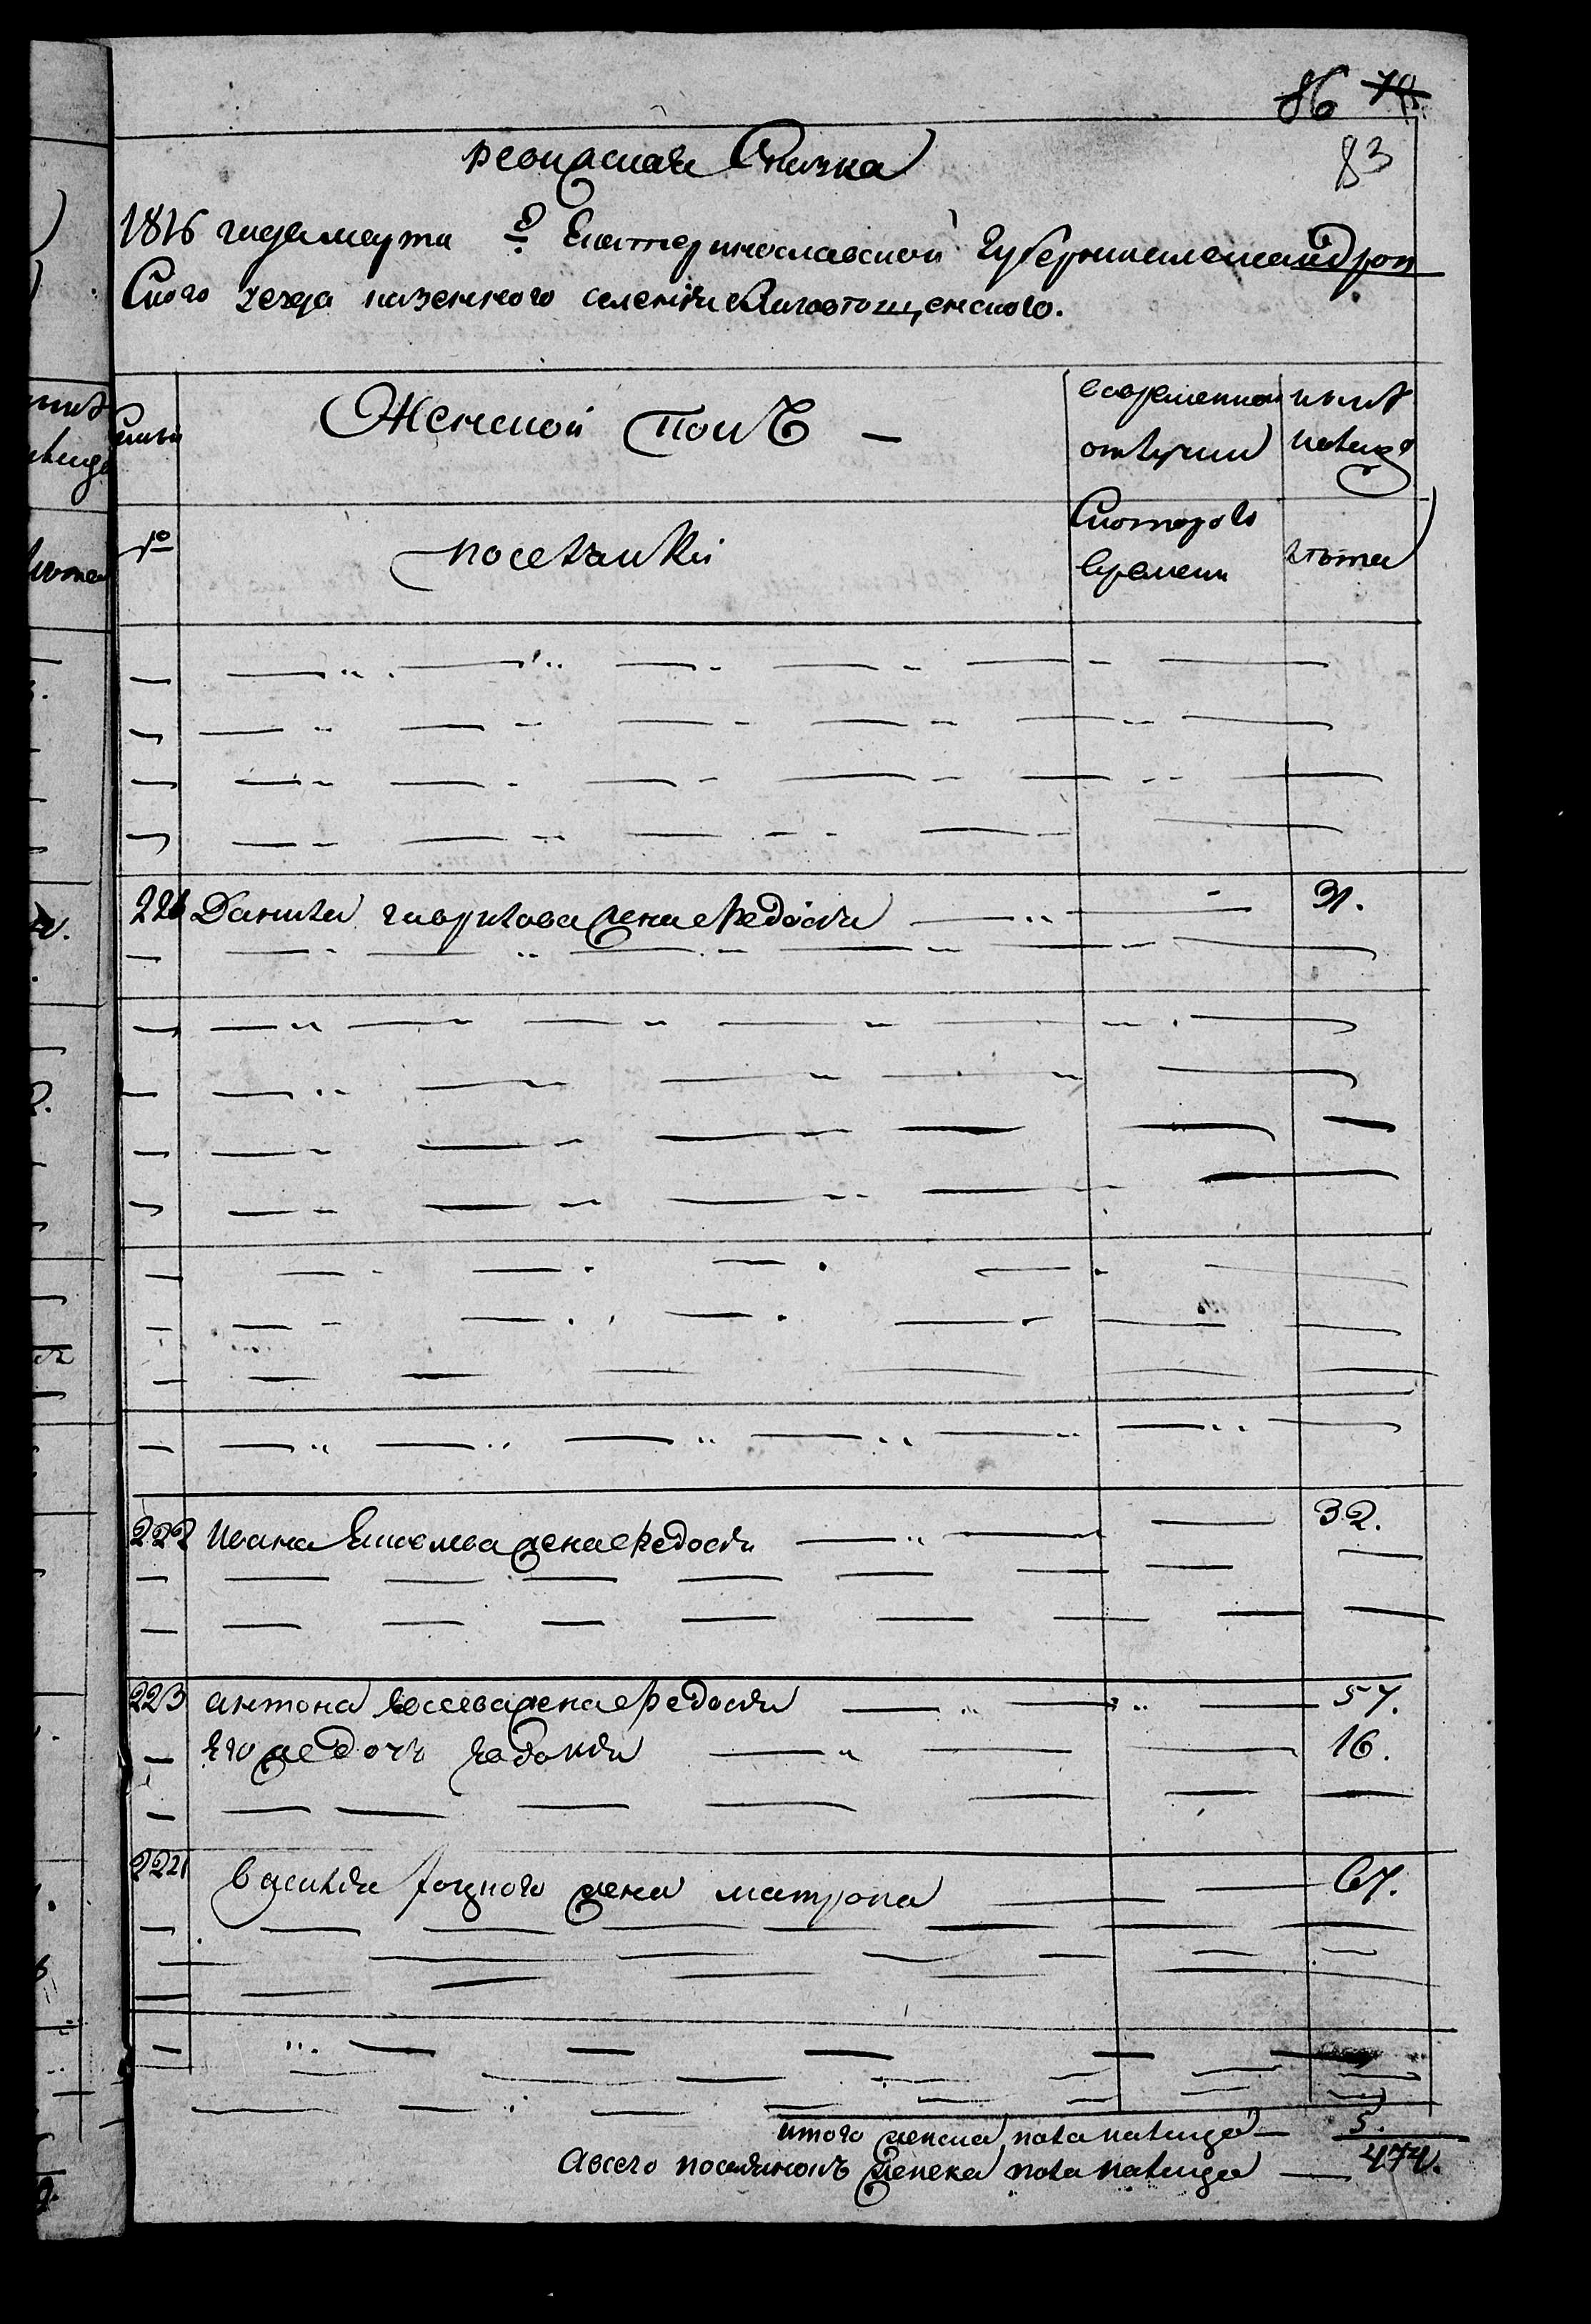 86 78.
83
ревизская Сказка
1816 года марта Екатеринославской Губернии александров
Скаго уезда казенного селения благовещенского.
Семьи
Женской полъ —
вовременной
отлучки
ныне
налицо
№
поселянки
Скоторого
времени
лета
221 Данила гаврилова жена федосия 31.
222 ивана жена федосия 32.
223 антона жена федосия 57.
Его же дочь 16.
224 василия жена матрона 67.
итого женска пола налицо — 5.
Авсего поселянокъ женска пола налицо — 474.